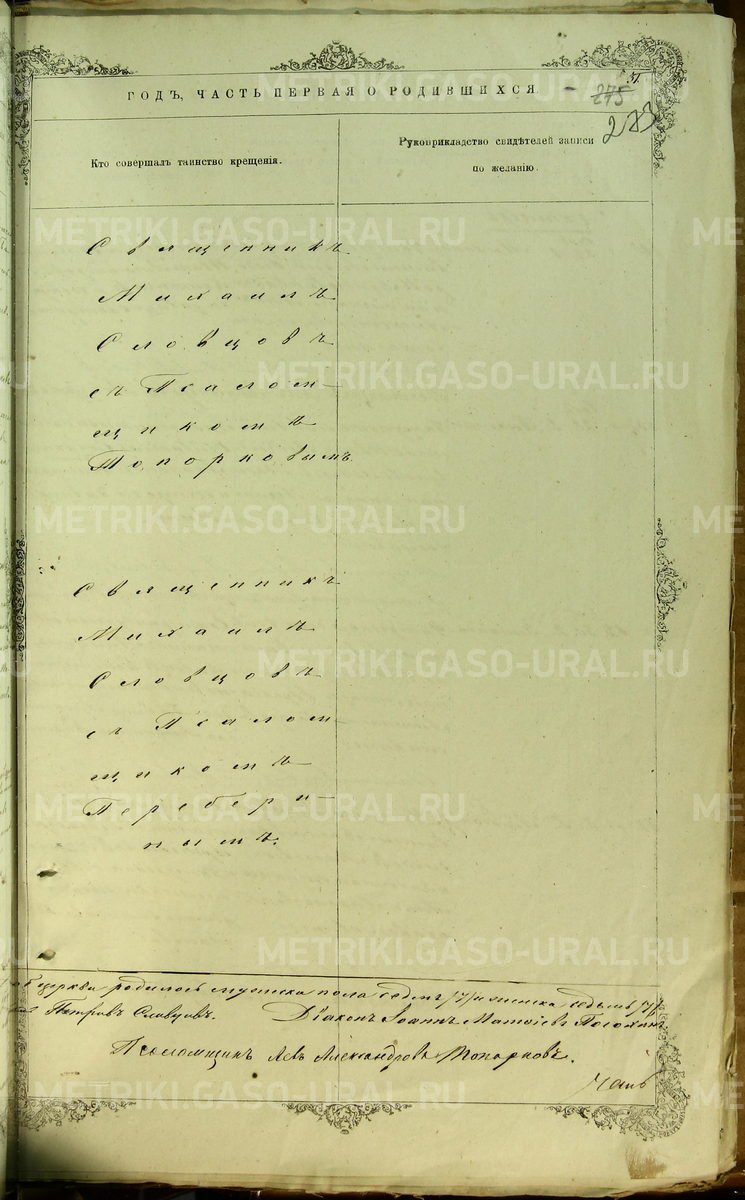 51
ГОДЪ, ЧАСТЬ ПЕРВАЯ О РОДИВШИХСЯ.
275
273
Кто совершалъ таинство крещенія.
Рукоприкладство свидѣтелей записи
по желанію.
Священникъ
Михаилъ
Словцовъ
съ Псалом-
щикомъ
Топорковымъ.
Священникъ
Михаилъ
Словцовъ
съ Псалом-
щикомъ
Перебери-
нымъ.
церкви родилось мужеска пола седмь /7/ и женска седьмь /7/
Петровъ Словцовъ. Діаконъ Іоаннъ
Псаломщикъ Левъ Александровъ Топорковъ.
METRIKI.GASO-URAL.RU